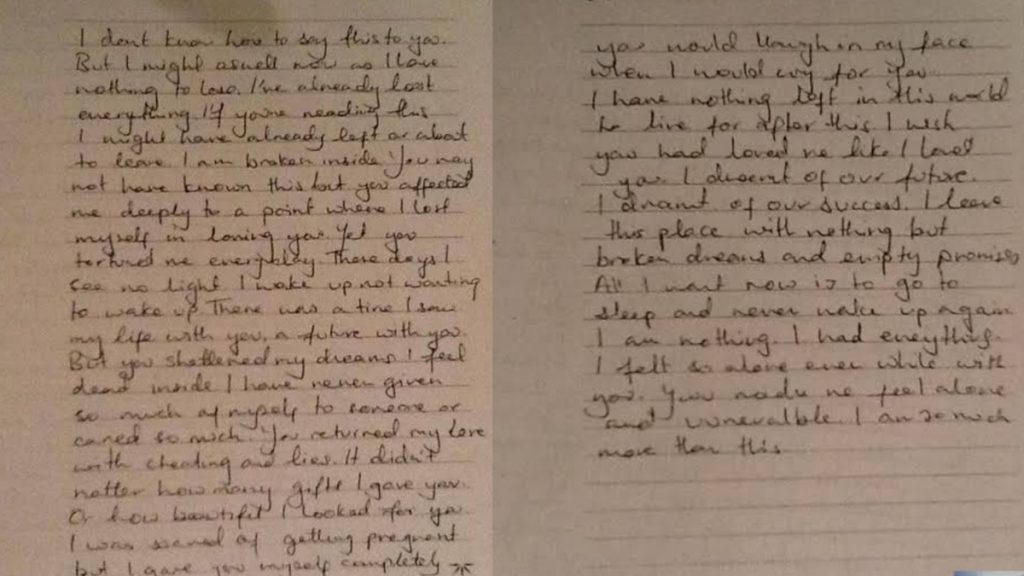 I dont know how to say this to you.
But I might aswell now as I have
nothing to lose. I've already lost
everything. If you're reading this
I might have already left or about
to leave. I am broken inside. You may
not have known this but you affected
me deeply to a point where I lost
myself in loving you. Yet you
tortured me everyday. These days I
see no light I wake up not wanting
to wake up. There was a time I saw
my life with you, a future with you.
But you shattered my dreams. I feel
dead inside. I have never given
so much of myself to someone or
cared so much. You returned my love
with cheating and lies. It didn't
matter how many gifts I gave you.
Or how beautiful I looked for you.
I was scared of getting pregnant
but I gave you myself completely
you would laugh in my face
when I would cry for you.
I have nothing left in this world
to live for after this. I wish
you had loved me like I loved
you. I dreamt of our future.
I dreamt of our success. I leave
this place with nothing but
broken dreams and empty promises
All I want now is to go to
sleep and never wake up again
I am nothing. I had everything.
I felt so alone even while with
you. You made me feel alone
and I am so much
more than this